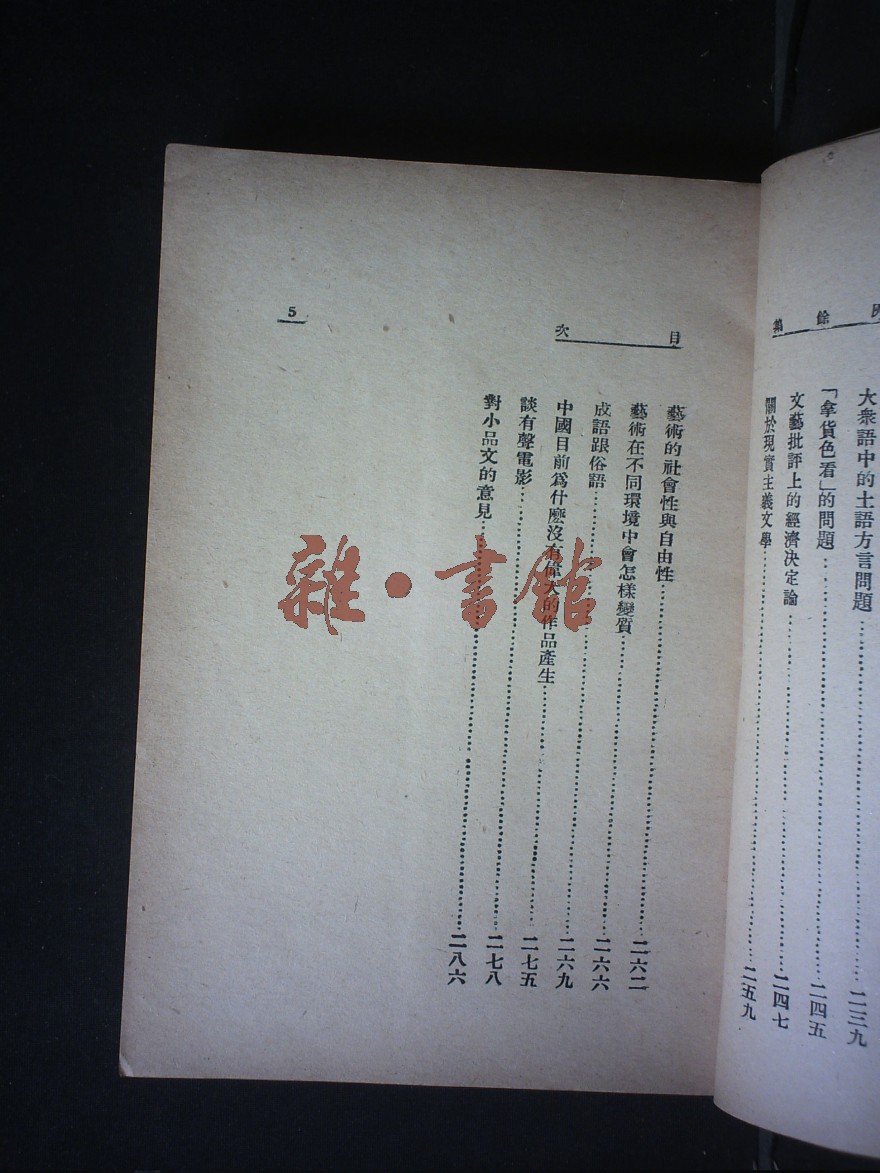 餘稿
大衆語中的土語方言問題……二三九
「拿貨色看」的問題……二四五
文藝批評上的經濟決定論……二四七
關於現實主義文學……二五九
目次
藝術的社會性與自由性……二六二
藝術在不同環境中會怎樣變質……二六六
成語跟俗語……二六九
中國目前爲什麽沒有偉大的作品產生……二七五
談有聲電影……二七八
對小品文的意見……二八六
5
雜·書館